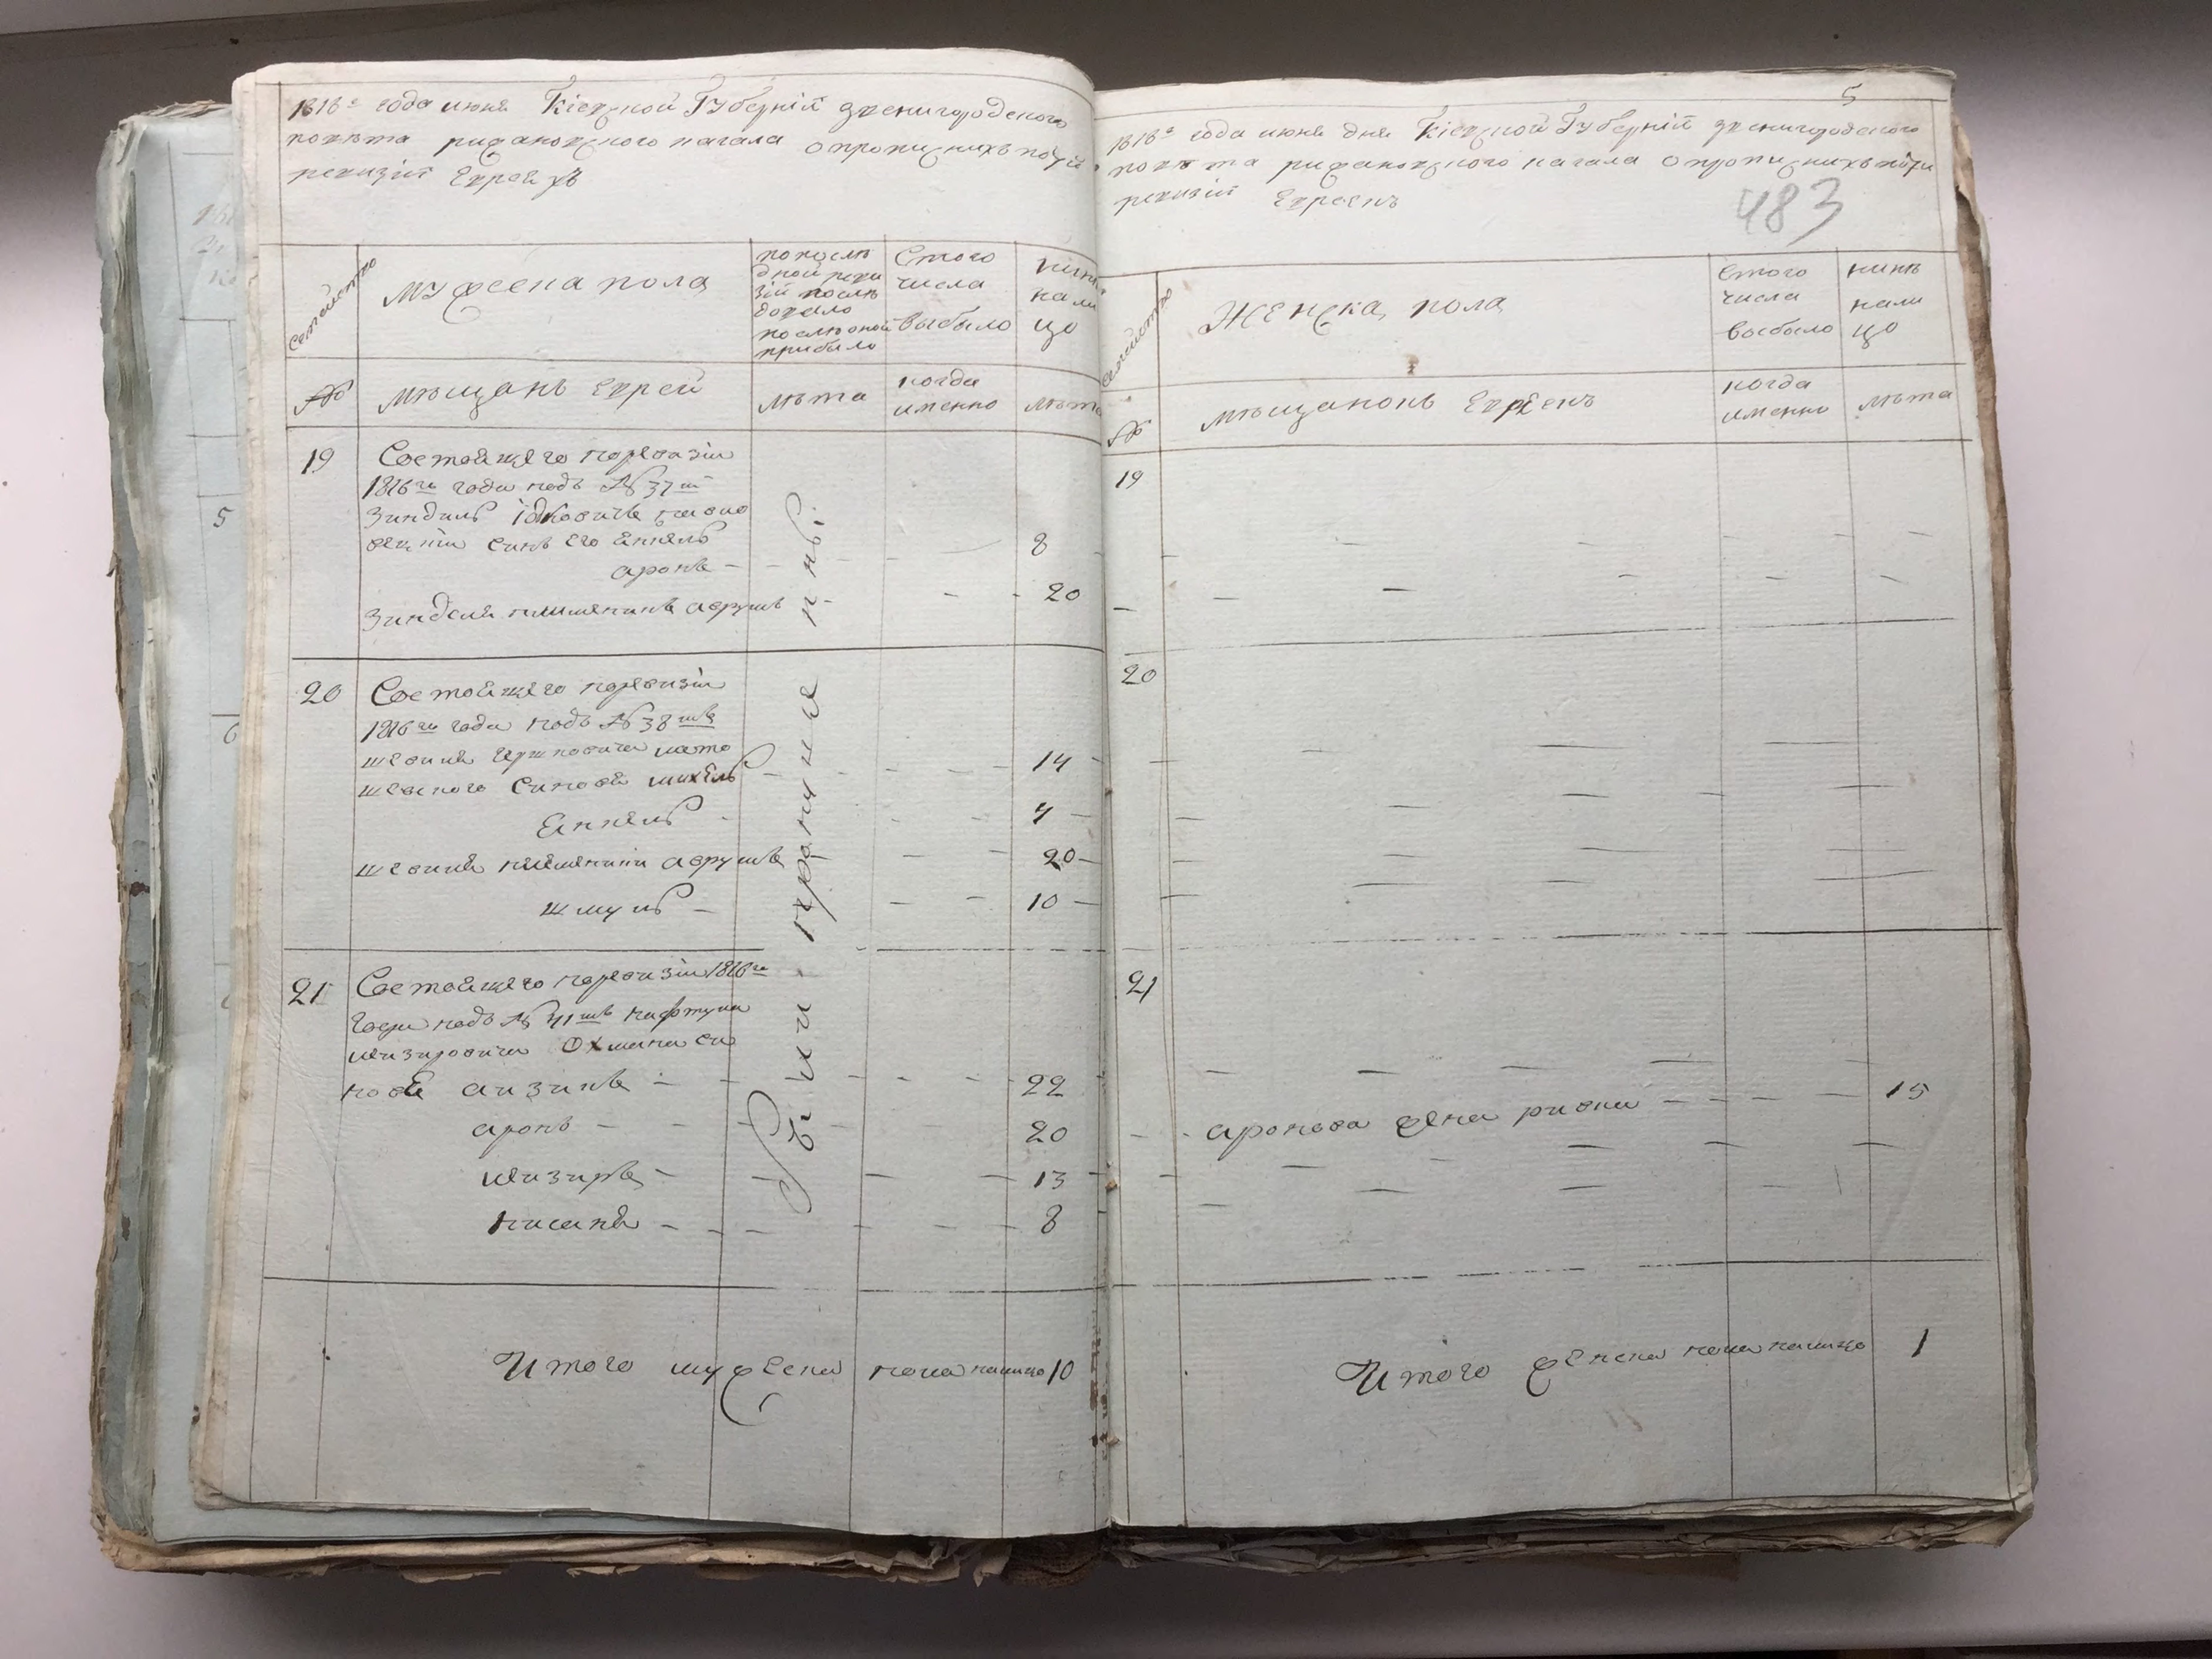 1818г года июня Кіевской Губерніи звенигородского
повѣта рижановского кагала о прописнихъ по
ревизіи Евреяхъ
Семейство
мужеска пола
по послѣ
дной реви
зіи послѣ
до
после оной
прибыло
Стого
числа
выбыло
нинѣ
нали
цо
№
мѣщанъ Еврей
лѣта
когда
именно
лѣта
19
Состоящего поревизіи
1816го года подъ №37м
Зиндиль
синъ его Янкель
8
аронъ
Зинделя племеникъ аврумъ
20
20
Состоящего поревизіи
1816го года подъ №38мъ
шевского синовя михель
14
Янкель
племеники аврумъ
20
шмуль
10
21
Состоящего поревизіи 1816го
года подъ №41мъ нафтули
лейзировича Охмана си
нове айзикъ
22
аронъ
20
лейзиръ
13
8
били пропущение
Итого мужеска пола налицо 10
5
1818г года июня дня Кіевской Губерніи звенигородского
повѣта рижановского кагала о прописнихъ по
ревизіи Евреекъ
483
Семейство
Женска пола
Стого
числа
выбыло
нинѣ
нали
цо
№
мѣщанокъ Евреекъ
когда
именно
лѣта
19
20
21
аронова жена ривка
15
Итого женска пола налицо 1